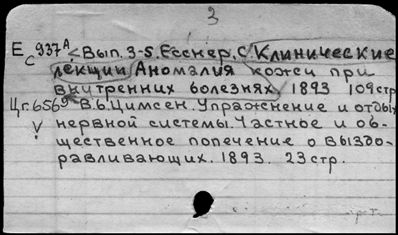 3
Ес 937А < Вып. 3-5. Есснер. С. Клинические
лекции Аномалия кожи при
внутренних болезнях. 1893 109стр
Цг. 656 В.Б. Цимсен. Упражнение и отдых
нервной системы. Частное и об-
щественное попечение о выздо-
равливающих. 1893. 23стр.